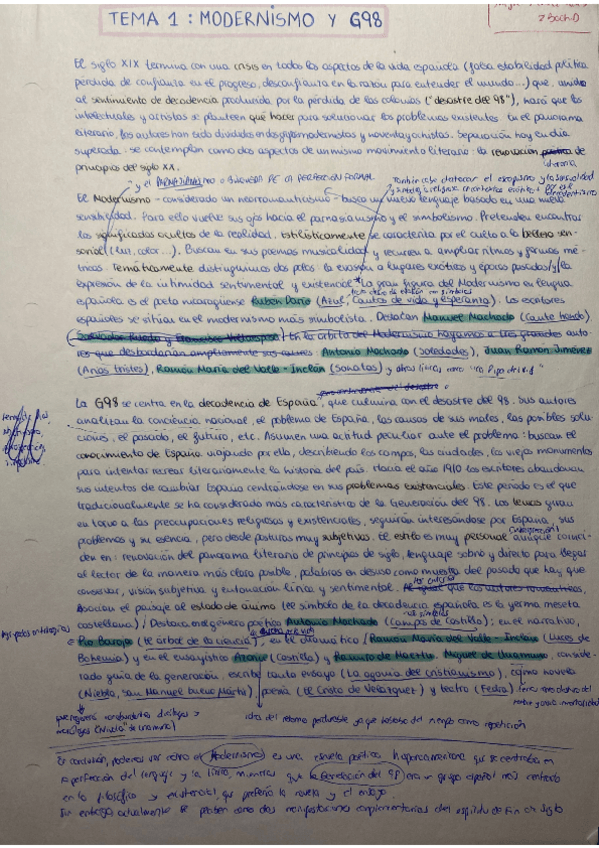 TEMA 1 : MODERNISMO Y G98
2 Bach D
El siglo XIX termina con una crisis en todos los aspectos de la vida española (falsa estabilidad política,
pérdida de confianza en el progreso, desconfianza en la razón para entender el mundo...) que, unida
al sentimiento de decadencia producida por la pérdida de las colonias ("desastre del 98"), hará que los
intelectuales y artistas se planteen qué hacer para solucionar los problemas existentes. En el panorama
literario, los autores han sido divididos en dos grupos modernistas y noventayochistas. Separación hoy en día
superada: se contemplan como dos aspectos de un mismo movimiento literario: la renovación
literaria
principios del siglo XX.
y el PARNASIANISMO o BÚSQUEDA DE LA PERFECCIÓN FORMAL
El Modernismo - considerado un neorromanticismo - busca un nuevo lenguaje basado en una nueva
sensibilidad. Para ello vuelve sus ojos hacia el parnasianismo y el simbolismo. Pretenden encontrar
los significados ocultos de la realidad. Estilísticamente se caracteriza por el culto a la belleza sen-
sorial (luz, color...). Buscan en sus poemas musicalidad y recurren a ampliar ritmos y formas mé-
tricas. Temáticamente distinguimos dos polos: la evasión a lugares exóticos y épocas pasadas y la
expresión de la intimidad sentimental y existencial. La gran figura del Modernismo en lengua
española es el poeta nicaragüense Rubén Darío (Azul, Cantos de vida y esperanza). Los escritores
españoles se sitúan en el modernismo más simbolista. Destacan Manuel Machado (Cante hondo),
Salvador Rueda y Francisco Villaespesa. En la órbita del Modernismo hayamos a tres grandes auto-
res que desbordarían ampliamente sus cauces: Antonio Machado (Soledades), Juan Ramón Jiménez
(Arias tristes), Ramón María del Valle-Inclán (Sonatas) y otros libros como "La Pipa de Kif"
La G98 se centra en la decadencia de España, que culmina con el desastre del 98. Sus autores
analizan la conciencia nacional, el problema de España, las causas de sus males, las posibles solu-
ciones, el pasado, el futuro, etc. Asumen una actitud peculiar ante el problema: buscan el
conocimiento de España viajando por ella, describiendo los campos, las ciudades, los viejos monumentos
para intentar recrear literariamente la historia del país. Hacia el año 1910 los escritores abandonan
sus intentos de cambiar España centrándose en sus problemas existenciales. Este periodo es el que
tradicionalmente se ha considerado más característico de la Generación del 98. Los temas giran
en torno a las preocupaciones religiosas y existenciales, seguirán interesándose por España, sus
problemas y su esencia, pero desde posturas muy subjetivas. El estilo es muy personal aunque coinci-
den en: renovación del panorama literario de principios de siglo, lenguaje sobrio y directo para llegar
al lector de la manera más clara posible, palabras en desuso como muestra del pasado que hay que
conservar, visión subjetiva y entonación lírica y sentimental. Al igual que los autores románticos,
Asocian el paisaje al estado de ánimo (el símbolo de la decadencia española es la yerma meseta
castellana). Destaca en el género poético Antonio Machado (Campos de Castilla); en el narrativo,
Pío Baroja (El árbol de la ciencia), en el dramático Ramón María del Valle-Inclán (Luces de
Bohemia) y en el ensayístico Azorín (Castilla) y Ramiro de Maeztu. Miguel de Unamuno, consi-
derado guía de la generación, escribe tanto ensayo (La agonía del cristianismo), como novela
(Niebla, San Manuel Bueno Mártir), poesía (El Cristo de Velázquez) y teatro (Fedra)
En conclusión, podemos ver cómo el Modernismo es una escuela poética hispanoamericana que se centraba en
la perfección del lenguaje y la lírica, mientras que la Generación del 98 era un grupo español más centrado
en lo filosófico y existencial que prefería la novela y el ensayo.
Sin embargo actualmente se prueban como dos manifestaciones complementarias del espíritu de fin de siglo